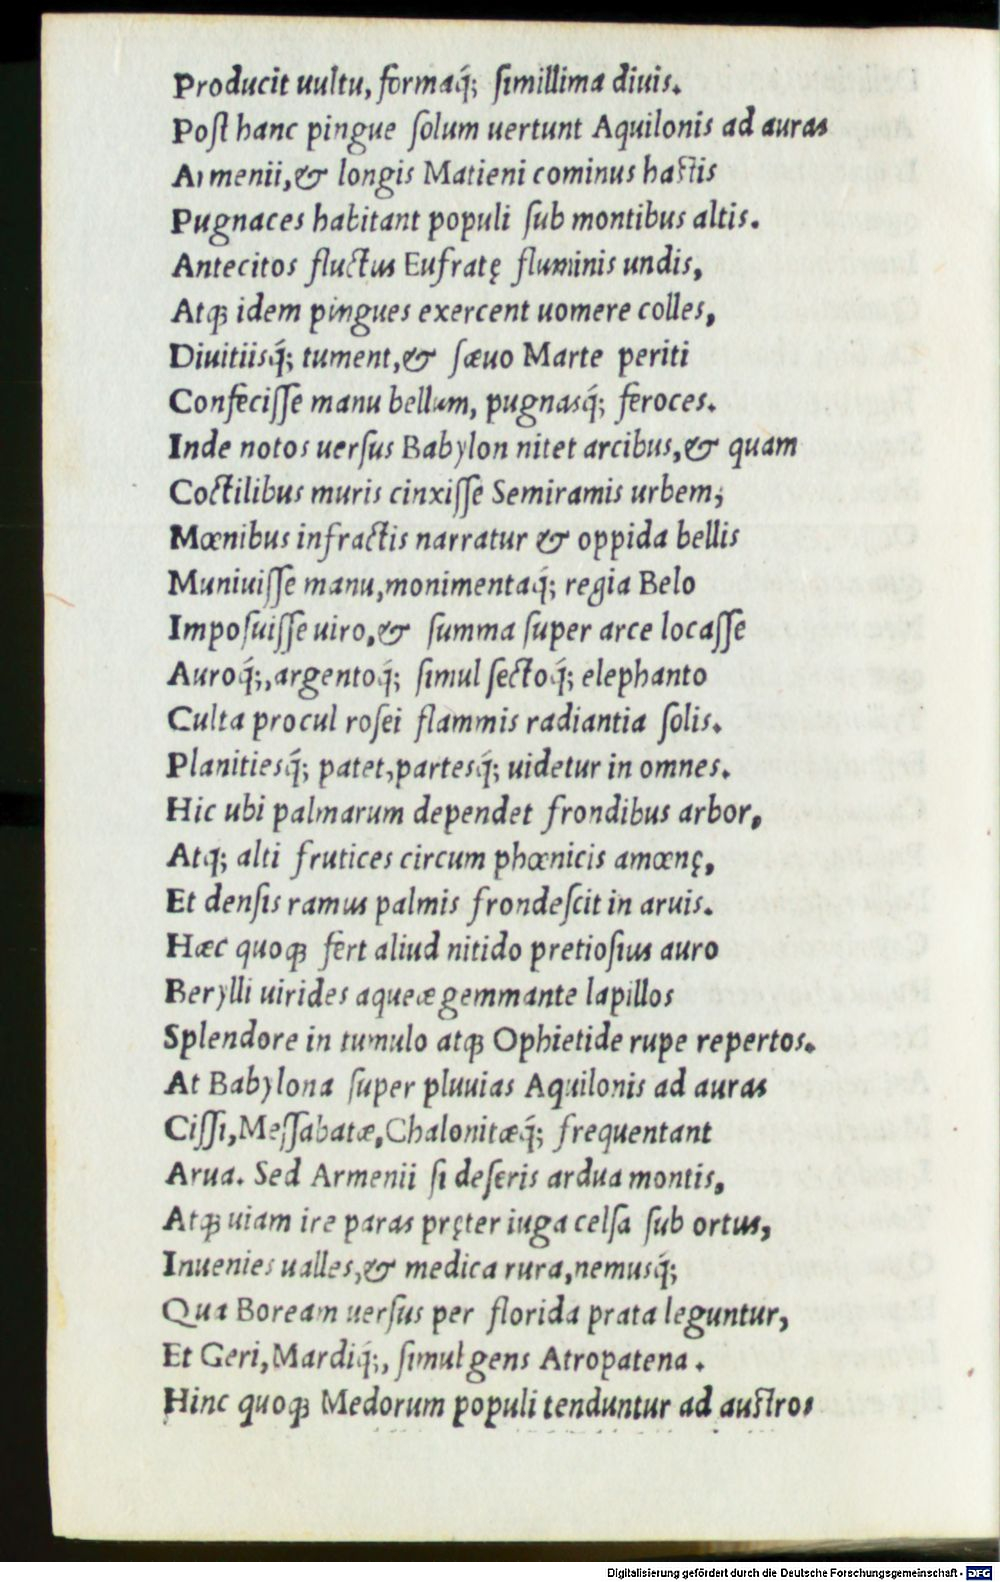 Producit uultu, formaq́; ſimillima diuis.
Poſt hanc pingue ſolum uertunt Aquilonis ad auras
Armenii,& longis Matieni cominus haſtis
Pugnaces habitant populi ſub montibus altis.
Antecitos fluctus Eufratę fluminis undis,
Atqꝫ idem pingues exercent uomere colles,
Diuitiisq́; tument,& ſæuo Marte periti
Confeciſſe manu bellum, pugnasq́; feroces.
Inde notos uerſus Babylon nitet arcibus,& quam
Coctilibus muris cinxiſſe Semiramis urbem;
Mœnibus infractis narratur & oppida bellis
Muniuiſſe manu,monimentaq́; regia Belo
Impoſuiſſe uiro,& ſumma ſuper arce locaſſe
Auroq́;,argentoq́; ſimul ſectoq́; elephanto
Culta procul roſei flammis radiantia ſolis.
Planitiesq́; patet,partesq́; uidetur in omnes.
Hic ubi palmarum dependet frondibus arbor,
Atq; alti frutices circum phœnicis amœnę,
Et denſis ramus palmis frondeſcit in aruis.
Hæc quoqꝫ fert aliud nitido pretioſius auro
Berylli uirides aqueæ gemmante lapillos
Splendore in tumulo atqꝫ Ophietide rupe repertos.
At Babylona ſuper pluuias Aquilonis ad auras
Ciſſi,Meſſabatæ,Chalonitæq́; frequentant
Arua. Sed Armenii ſi deſeris ardua montis,
Atqꝫ uiam ire paras pręter iuga celſa ſub ortus,
Inuenies ualles,& medica rura,nemusq́;
Qua Boream uerſus per florida prata leguntur,
Et Geri,Mardiq́;, ſimul gens Atropatena.
Hinc quoqꝫ Medorum populi tenduntur ad auſtros
Digitalisierung gefördert durch die Deutsche Forschungsgemeinschaft - DFG